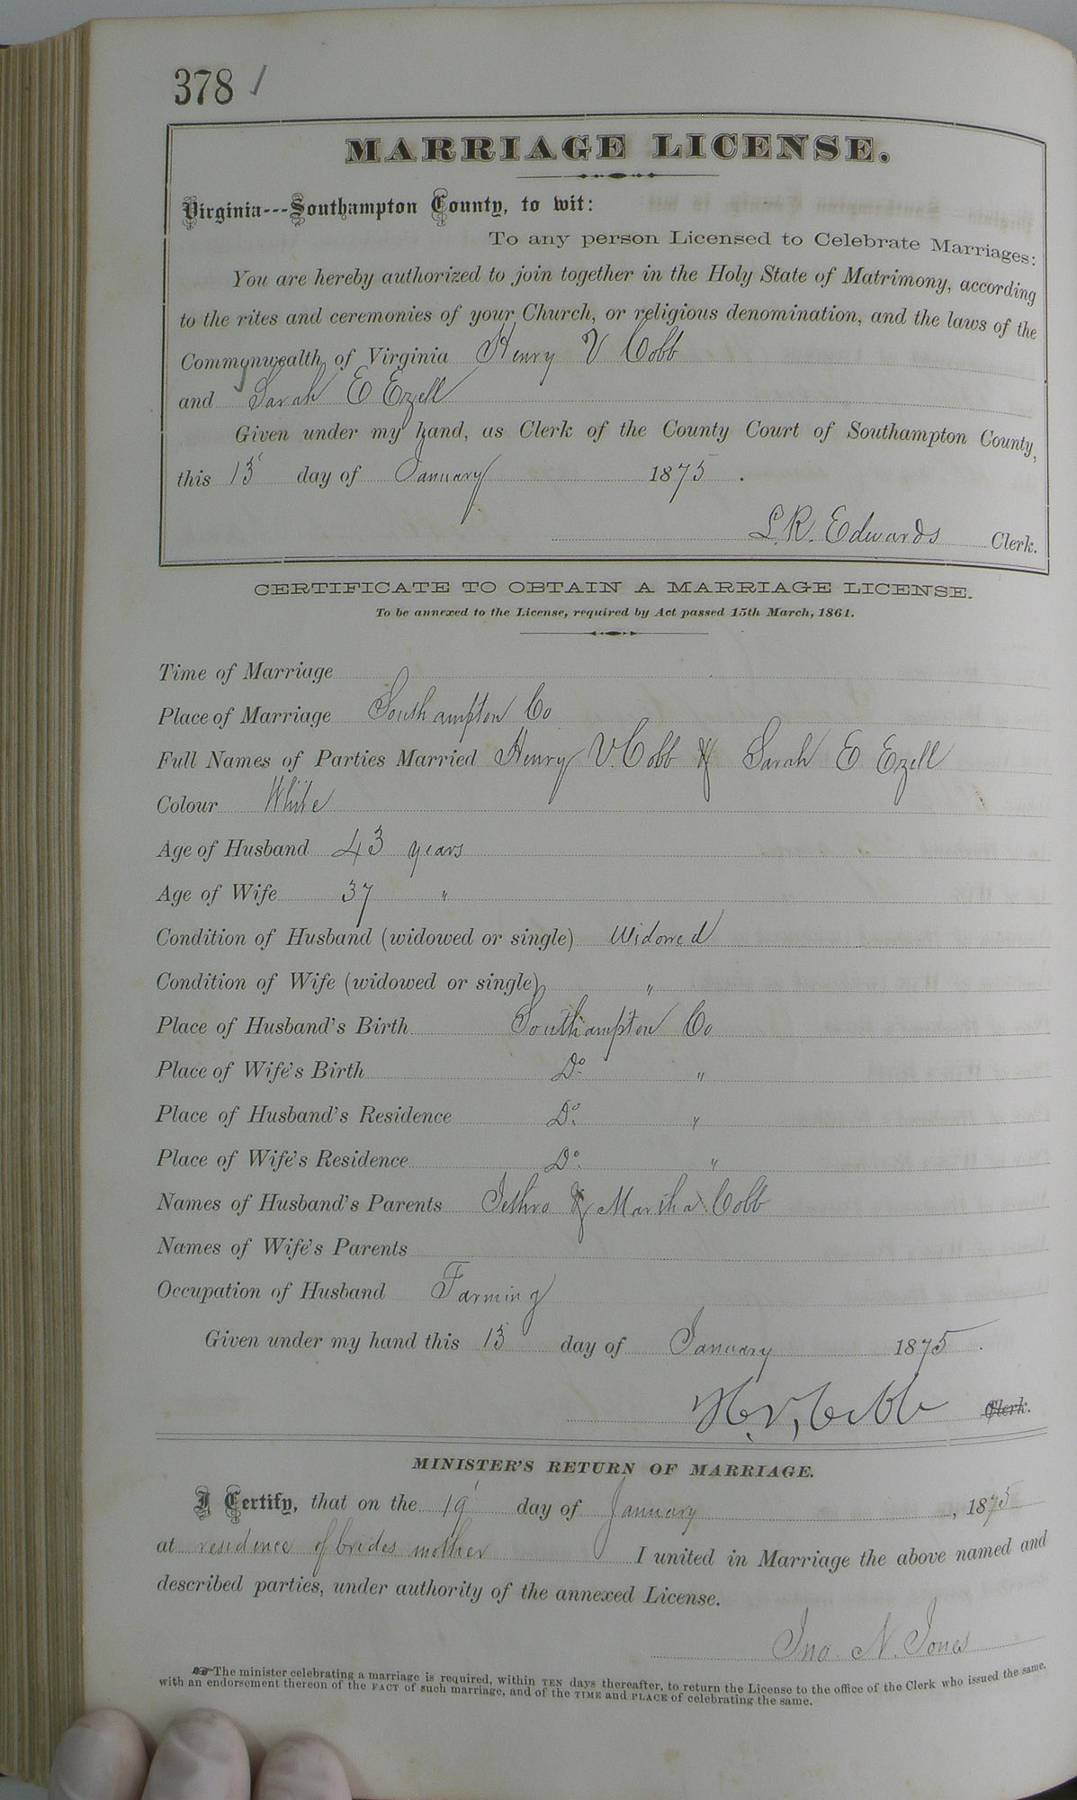 378 /
MARRIAGE LICENSE.
Virginia---Southampton County, to wit:
To any person Licensed to Celebrate Marriages:
You are hereby authorized to join together in the Holy State of Matrimony, according
to the rites and ceremonies of your Church, or religious denomination, and the laws of the
Commonwealth of Virginia Henry V Cobb
and Sarah E Ezell
Given under my hand, as Clerk of the County Court of Southampton County,
this 13 day of January 1875 .
L. R. Edwards Clerk.
CERTIFICATE TO OBTAIN A MARRIAGE LICENSE.
To be annexed to the License, required by Act passed 15th March, 1861.
Time of Marriage
Place of Marriage Southampton Co
Full Names of Parties Married Henry V. Cobb & Sarah E Ezell
Colour White
Age of Husband 43 years
Age of Wife 37 "
Condition of Husband (widowed or single) Widowed
Condition of Wife (widowed or single) "
Place of Husband's Birth Southampton Co
Place of Wife's Birth Do "
Place of Husband's Residence Do. "
Place of Wife's Residence Do. "
Names of Husband's Parents Jethro & Martha Cobb
Names of Wife's Parents
Occupation of Husband Farming
Given under my hand this 13 day of January 1875 .
H. V. Cobb Clerk.
MINISTER'S RETURN OF MARRIAGE.
I Certify, that on the 19 day of January , 1875
at residence of brides mother I united in Marriage the above named and
described parties, under authority of the annexed License.
Jno. N. Jones
☞ The minister celebrating a marriage is required, within TEN days thereafter, to return the License to the office of the Clerk who issued the same,
with an endorsement thereon of the FACT of such marriage, and of the TIME and PLACE of celebrating the same.